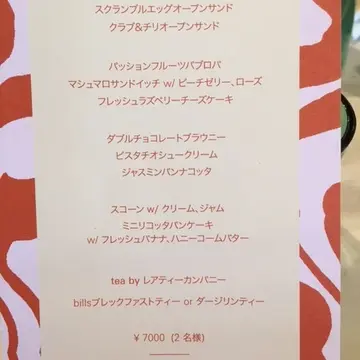 スクランブルエッグオープンサンド
クラブ&チリオープンサンド
パッションフルーツパブロバ
マシュマロサンドイッチ w/ ピーチゼリー、ローズ
フレッシュラズベリーチーズケーキ
ダブルチョコレートブラウニー
ピスタチオシュークリーム
ジャスミンパンナコッタ
スコーン w/ クリーム、ジャム
ミニリコッタパンケーキ
w/ フレッシュバナナ、ハニーコームバター
tea by レアティーカンパニー
billsブレックファストティー or ダージリンティー
¥ 7000 (2 名様)